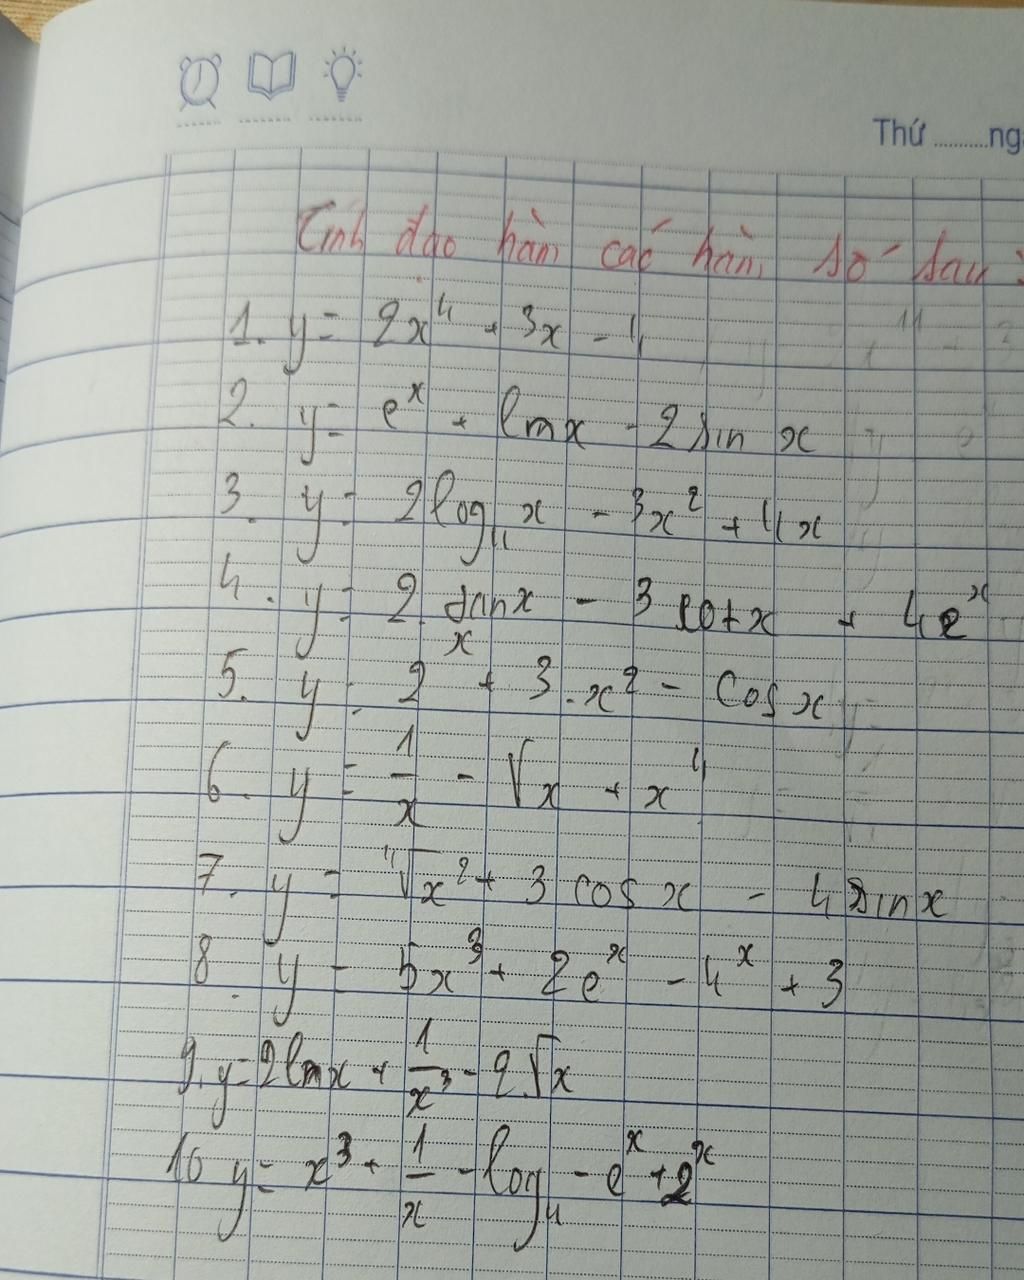 Thứ ..........ng
Tính đạo hàm các hàm số sau :
1. y = 2x⁴ + 3x - 4
2. y = eˣ + lnx - 2 sin x
3. y = 2log₄ x - 3x² + 4x
4. y = 2 tanx - 3 cotx + 4eˣ
5. y = 2ˣ + 3.x² - cosx
6. y = 1/x - √x + x⁴
7. y = ⁴√x² + 3 cos x - 4 sinx
8. y = 5x³ + 2eˣ - 4ˣ + 3
9. y = 2lnx + 1/x³ - 2√x
10 y = x³ + 1/x - log₄ - eˣ + 2ˣ